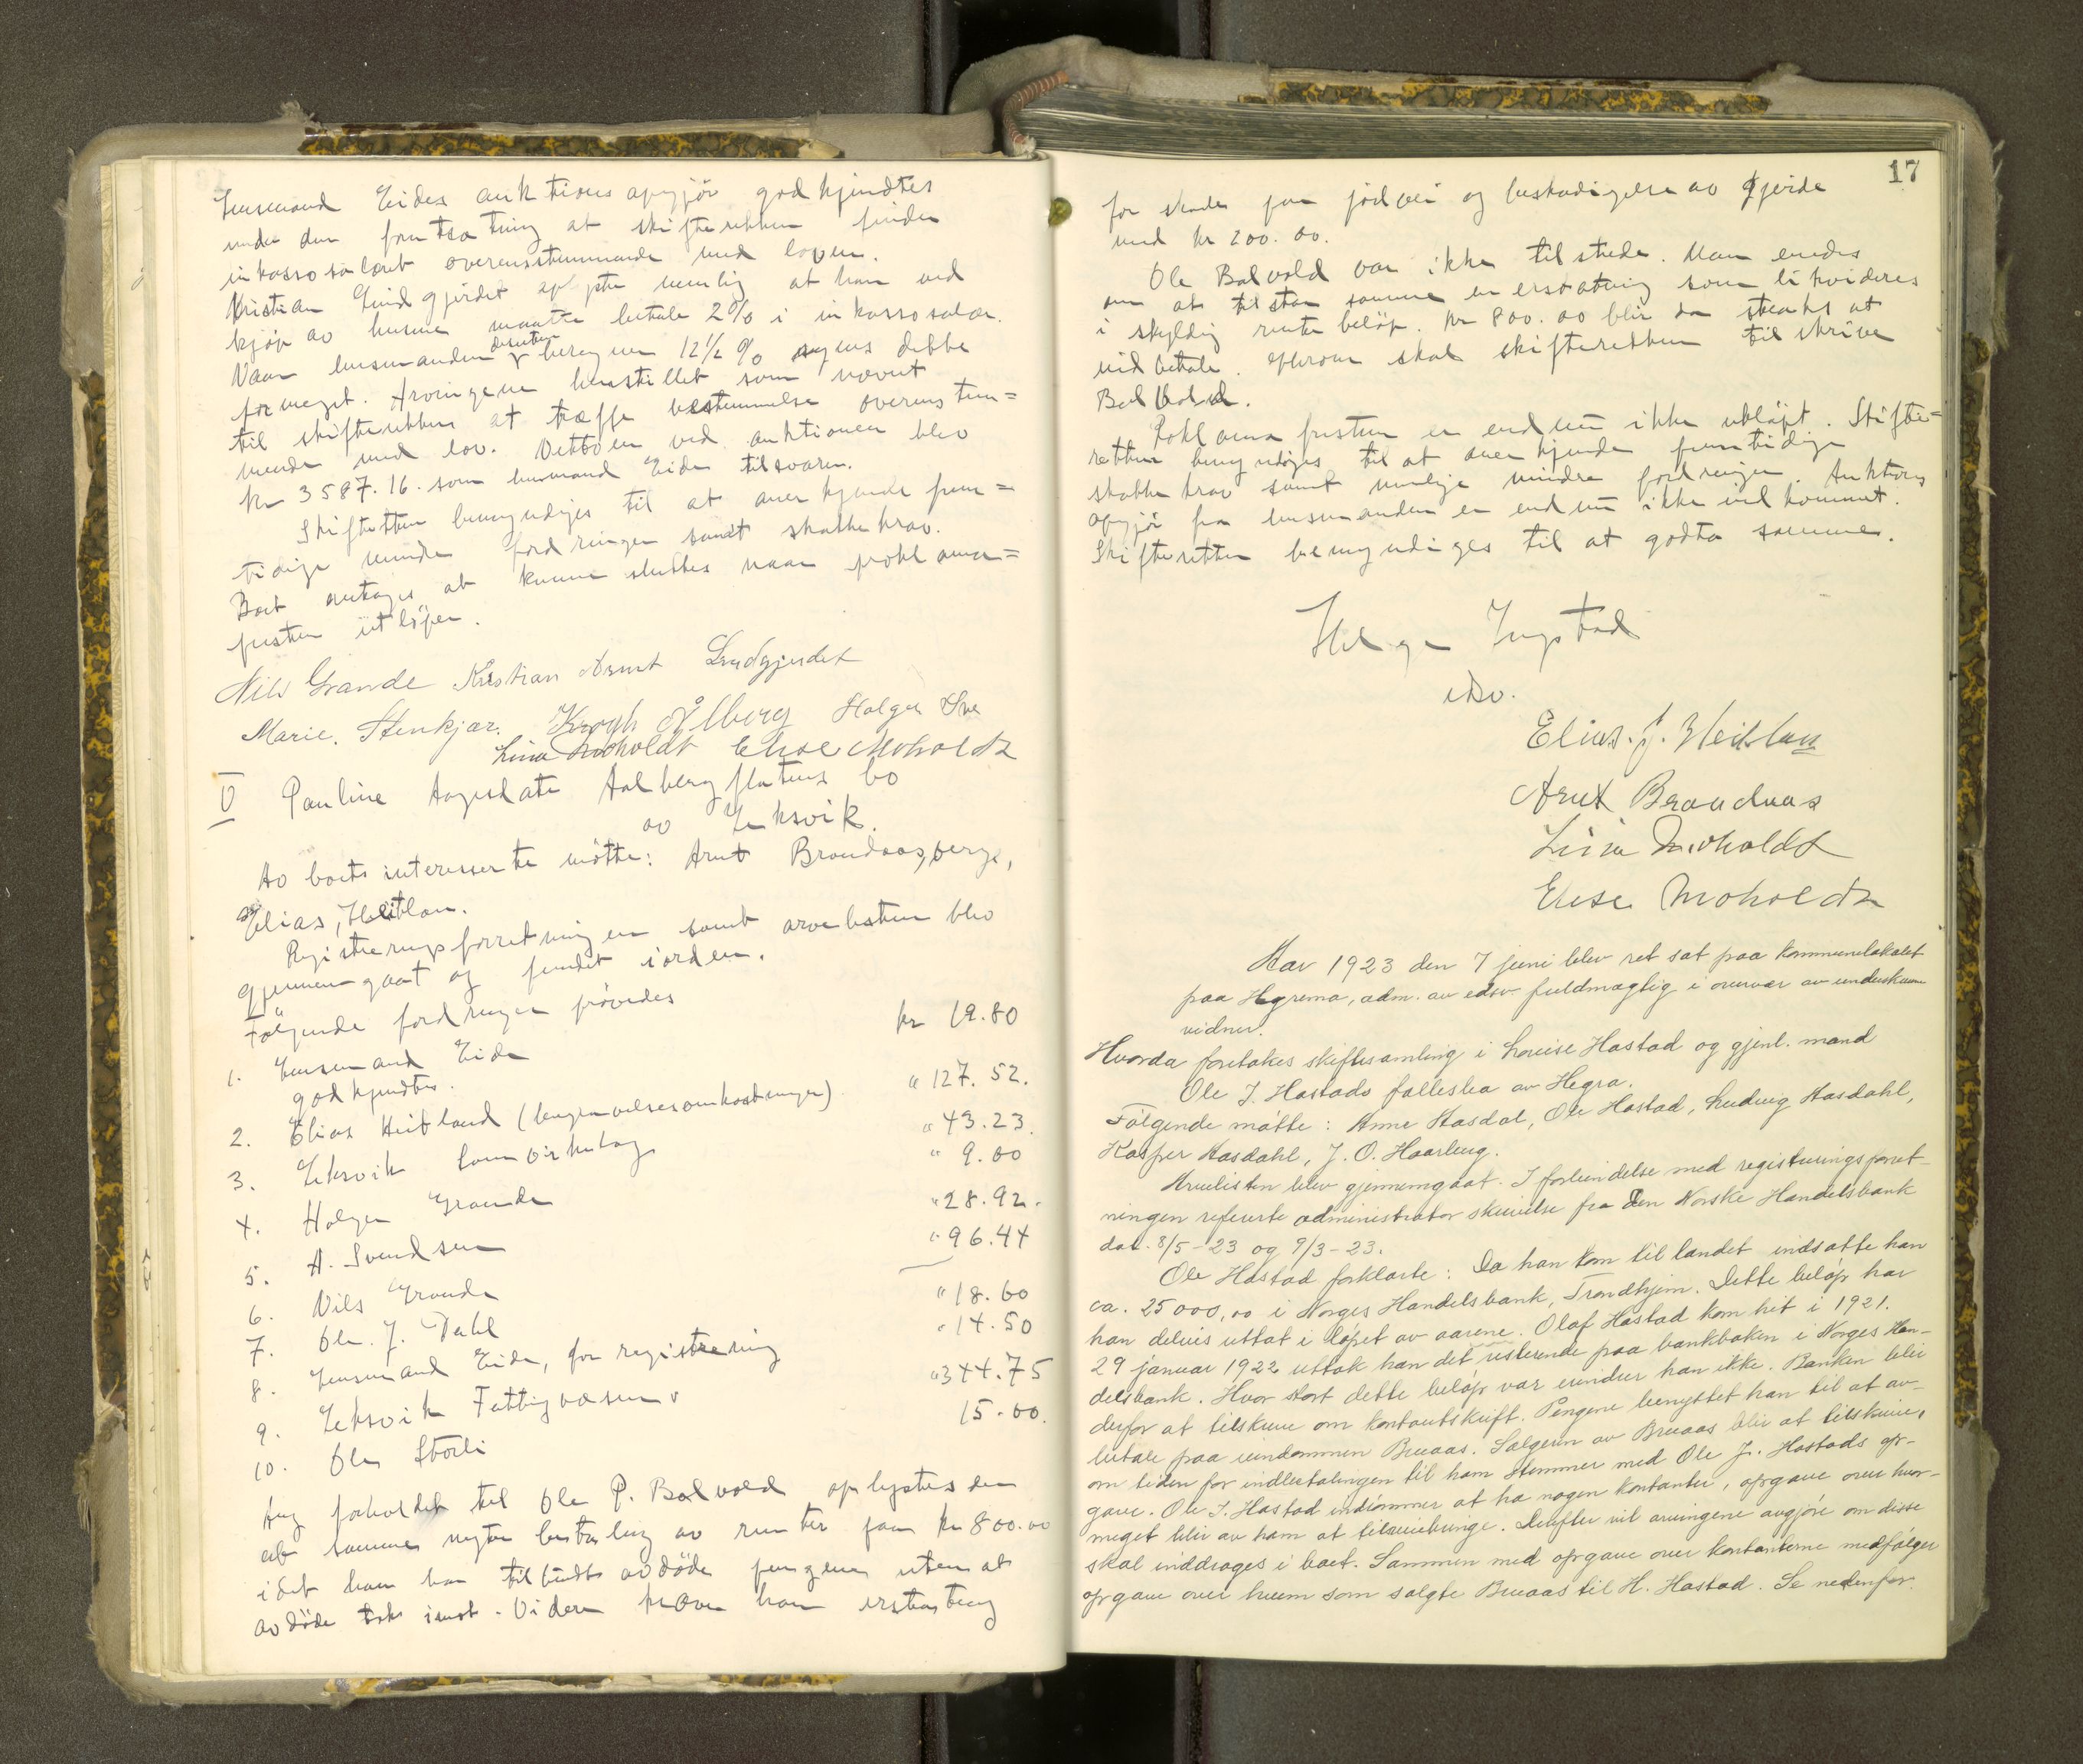 Lensmand Eides auktionsopgjör godkjendtes
under den forutsætning at skifteretten finder
inkassosalæret overensstemmende med loven.
Kristian Lindgjerdet oplyste nemlig at han ved
kjöp av husene maatte betale 2% i inkassosalær.
Naar lensmanden desuten beregner 12½ % synes dette
for meget. Arvingene henstillet som nævnt
til skifteretten at træffe bestemmelse overenstem=
mende med lov. Nettoen ved auktionen blev
kr 3587.16. som lensmand Eide tilsvarer.
Skifteretten bemyndiges til at anerkjende frem=
tidige mindre fordringer samt skattekrav.
Boet antages at kunne sluttes naar proklama=
fristen utlöper.
Nils Grande Kristian Arnt Lindgjerdet
Marie. Stenkjær. Krogh Ålberg Holger Sve
Lina Moholdt Elise Moholdt
V Pauline Aagesdatter Aalbergflatens bo
av Leksvik.
Av boets interesserte mötte: Arnt Brandaas, verge,
Elias Heitlan.
Registreringsforretningen samt arvelisten blev
gjennemgaat og fundet iorden.
Følgende fordringer prövedes
1. Lensmand Eide kr 19.80
godkjendtes.
2. Elias Heitland (begravelsesomkostninger) " 127.52.
3. Leksvik Samvirkelag " 43.23.
4. Holger Grande " 9.00
5. A. Svendsen " 28.92.
6. Nils Grande " 96.44
7. Ole. J. Dahl " 18.60
8. Lensmand Eide, for registrering " 14.50
9. Leksvik Fattigvæsen " 344.75
10. Ole Storli 15.00.
Ang forholdet til Ole P. Balvold oplystes den
at samme negter betaling av renter paa kr 800.00
idet han har tilbudt avdöde pengene uten at
avdöde tok imot. Videre kræver han erstatning
17
for skade paa jördvei og beskadigelse av gjerde
med kr 200.00.
Ole Balvold var ikke tilstede. Man enedes
om at tilstaa samme en erstatning som likvideres
i skyldig rentebelöp. Kr 800.00 blir da straks at
indbetale. Herom skal skifteretten tilskrive
Balvold.
Proklamafristen er endnu ikke utlöpt. Skifte=
retten bemyndiges til at anerkjende fremtidige
skattekrav samt mulige mindre fordringer. Auktions
opgjör fra lensmanden er endnu ikke indkommet.
Skifteretten bemyndiges til at godta samme.
Helge Ingstad
edsv.
Elias. J. Heitlan
Arnt Brandaas
Lina Moholdt
Elise Moholdt
Aar 1923 den 7 juni blev ret sat paa kommunelokalet
paa Hegremo, adm. av edsv. fuldmægtig i overvær av underskrevne
vidner.
Hvorda foretakes skiftesamling i Louise Hastad og gjenl. mand
Ole J. Hastads fællesbo av Hegra.
Følgende møtte: Anne Aasdal, Ole Hastad, Ludvig Aasdahl,
Kasper Aasdahl, J. O. Haarberg.
Arvelisten blev gjennemgaat. I forbindelse med registreringsforret-
ningen refererte administrator skrivelse fra Den Norske Handelsbank
dat. 8/5-23 og 9/3-23.
Ole Hastad forklarte: Da han kom til landet indsatte han
ca. 25000,00 i Norges Handelsbank, Trondhjem. Dette beløp har
han delvis uttat i løpet av aarene. Olaf Hastad kom hit i 1921.
29 januar 1922 uttok han det resterende paa bankboken i Norges Han-
delsbank. Hvor stort dette beløp var erindrer han ikke. Banken blir
derfor at tilskrive om kontoutskrift. Pengene benyttet han til at av-
betale paa eiendommen Bruaas. Sælgeren av Bruaas blir at tilskrive,
om tiden for indbetalingen til ham stemmer med Ole J. Hastads op-
gave. Ole J. Hastad indrømmer at ha nogen kontanter, opgave over hvor-
meget blir av ham at tilveiebringe. Derefter vil arvingene avgjøre om disse
skal inddrages i boet. Sammen med opgave over kontanterne medfølger
opgave over hvem som solgte Bruaas til H. Hastad. Se nedenfor.